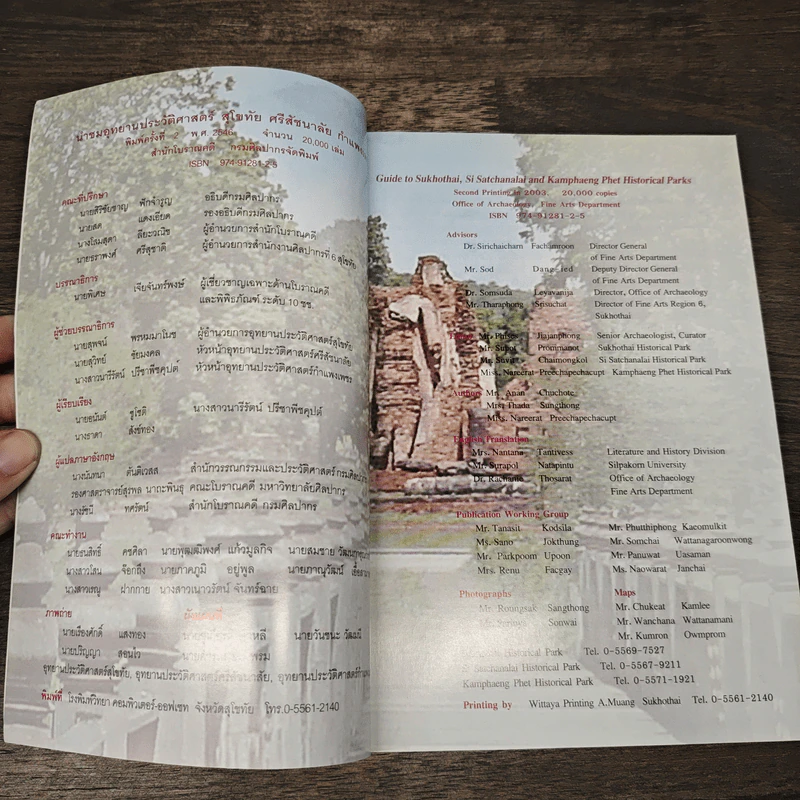 นำชมอุทยานประวัติศาสตร์ สุโขทัย ศรีสัชนาลัย กำแพง
พิมพ์ครั้งที่ 2 พ.ศ. 2546 จำนวน 20,000 เล่ม
สำนักโบราณคดี กรมศิลปากรจัดพิมพ์
ISBN 974-91281-2-5
คณะที่ปรึกษา
นายสิริชัยชาญ ฟักจำรูญ อธิบดีกรมศิลปากร
นายสด แดงเอียด รองอธิบดีกรมศิลปากร
นางโสมสุดา ลียะวณิช ผู้อำนวยการสำนักโบราณคดี
นายธราพงศ์ ศรีสุชาติ ผู้อำนวยการสำนักงานศิลปากรที่ 6 สุโขทัย
บรรณาธิการ
นายพิเศษ เจียจันทร์พงษ์ ผู้เชี่ยวชาญเฉพาะด้านโบราณคดี
และพิพิธภัณฑ์ ระดับ 10 ชช.
ผู้ช่วยบรรณาธิการ
นายสุพจน์ พรหมมาโนช ผู้อำนวยการอุทยานประวัติศาสตร์สุโขทัย
นายสุวิทย์ ชัยมงคล หัวหน้าอุทยานประวัติศาสตร์ศรีสัชนาลัย
นางสาวนารีรัตน์ ปรีชาพีชคุปต์ หัวหน้าอุทยานประวัติศาสตร์กำแพงเพชร
ผู้เรียบเรียง
นายอนันต์ ชูโชติ นางสาวนารีรัตน์ ปรีชาพีชคุปต์
นางธาดา สังข์ทอง
ผู้แปลภาษาอังกฤษ
นางนันทนา ตันติเวสส สำนักวรรณกรรมและประวัติศาสตร์ กรมศิลปากร
รองศาสตราจารย์สุรพล นาถะพินธุ คณะโบราณคดี มหาวิทยาลัยศิลปากร
นางรัชนี ทศรัตน์ สำนักโบราณคดี กรมศิลปากร
คณะทำงาน
นายธนสิทธิ์ คชศิลา นายพุฒฒิพงศ์ แก้วมูลกิจ นายสมชาย
นางสาวโสน จ๊อกถึง นายภาคภูมิ อยู่พูล นายภาณุวัฒน์
นางสาวเรณู ฝากกาย นางสาวเนาวรัตน์ จันทร์ฉาย
ภาพถ่าย
นายเรืองศักดิ์ แสงทอง นายวันชนะ
นายปริญญา สอนไว
อุทยานประวัติศาสตร์สุโขทัย, อุทยานประวัติศาสตร์ศรีสัชนาลัย, อุทยานประวัติศาสตร์
พิมพ์ที่ โรงพิมพ์วิทยา คอมพิวเตอร์-ออฟเซท จังหวัดสุโขทัย โทร.0-5561-2140
Guide to Sukhothai, Si Satchanalai and Kamphaeng Phet Historical Parks
Second Printing in 2003, 20,000 copies
Office of Archaeology, Fine Arts Department
ISBN 974-91281-2-5
Advisors
Dr. Sirichaicharn Fachamroon Director General
of Fine Arts Department
Mr. Sod Dang-ied Deputy Director General
of Fine Arts Department
Dr. Somsuda Leyavanija Director, Office of Archaeology
Mr. Tharaphong Srisuchat Director of Fine Arts Region 6,
Sukhothai
Mr. Jiajanphong Senior Archaeologist, Curator
Mr. Supot Prommanot Sukhothai Historical Park
Mr. Chaimongkol Si Satchanalai Historical Park
Miss. Nareerat Preechapeechacupt Kamphaeng Phet Historical Park
Authors Mr. Anan Chuchote
Mrs. Thada Sungthong
Miss. Nareerat Preechapeechacupt
English Translation
Mrs. Nantana Tantivess Literature and History Division
Mr. Surapol Natapintu Silpakorn University
Dr. Rachanie Thosarat Office of Archaeology
Fine Arts Department
Publication Working Group
Mr. Tanasit Kodsila Mr. Phutthiphong Kaeomulkit
Ms. Sano Jokthung Mr. Somchai Wattanagaroonwong
Mr. Parkpoom Upoon Mr. Panuwat Uasaman
Mrs. Renu Facgay Ms. Naowarat Janchai
Photographs Maps
Mr. Roongsak Sangthong Mr. Chukeat Kamlee
Sonwai Mr. Wanchana Wattanamani
Mr. Kumron Owmprom
Historical Park Tel. 0-5569-7527
Si Satchanalai Historical Park Tel. 0-5567-9211
Kamphaeng Phet Historical Park Tel. 0-5571-1921
Printing by Wittaya Printing A.Muang Sukhothai Tel. 0-5561-2140